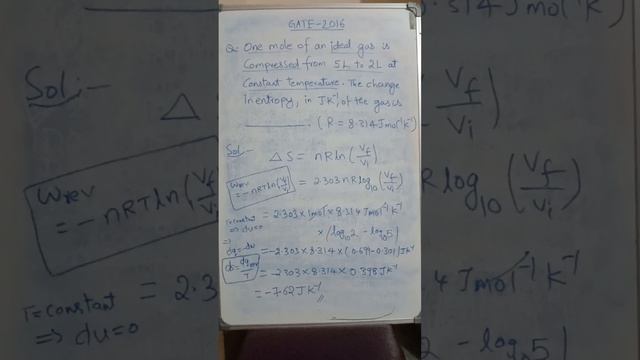 GATE-2016
Q: One mole of an ideal gas is
Compressed from 5L to 2L at
Constant temperature. The change
in entropy, in JK⁻¹, of the gas is
________. (R = 8.314 J mol⁻¹ K⁻¹)
Sol:-
ΔS = nR ln (Vf/Vi)
Wrev = -nRT ln (Vf/Vi)
= 2.303 nR log₁₀ (Vf/Vi)
T = constant
⇒ du=0
= 2.303 × 1mol × 8.314 J mol⁻¹ K⁻¹
× (log₁₀2 - log₁₀5)
⇒
dq = -dw
= -2.303 × 8.314 × (0.699 - 0.301) JK⁻¹
ds = dqrev/T
= -2.303 × 8.314 × 0.398 JK⁻¹
= -7.62 JK⁻¹
Sol:-
Δ
Wrev
= -nRT ln (
T = constant
⇒ du=0
= 2.3
8.314 J mol⁻¹ K⁻¹)
Vf/Vi
R log₁₀ (Vf/Vi)
4 J mol⁻¹ K⁻¹
2 - log₁₀5)